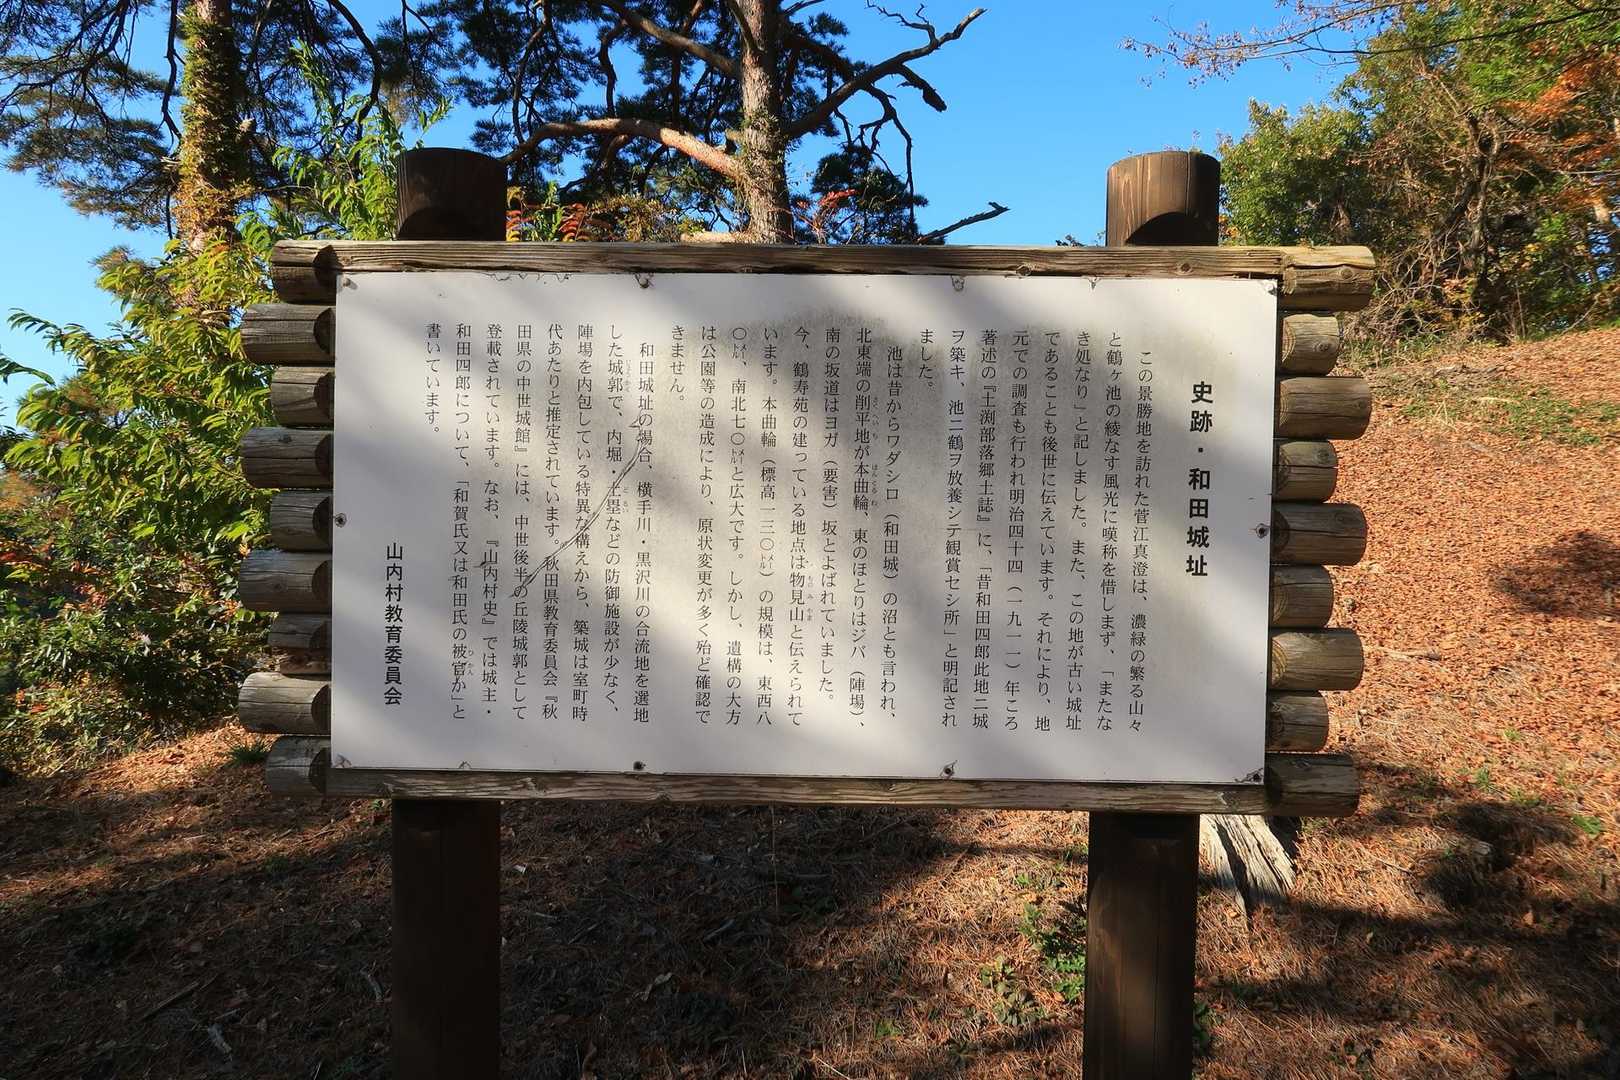 史跡・和田城址
この景勝地を訪れた菅江真澄は、濃緑の繁る山々
と鶴ヶ池の綾なす風光に嘆称を惜しまず、「またな
き処なり」と記しました。また、この地が古い城址
であることも後世に伝えています。それにより、地
元での調査も行われ明治四十四（一九一一）年ころ
著述の『土渕部落郷土誌』に、「昔和田四郎此地ニ城
ヲ築キ、池ニ鶴ヲ放養シテ観賞セシ所」と明記され
ました。
池は昔からワダシロ（和田城）の沼とも言われ、
北東端の削平地が本曲輪、東のほとりはジバ（陣場）、
南の坂道はヨガ（要害）坂とよばれていました。
今、鶴寿苑の建っている地点は物見山と伝えられて
います。本曲輪（標高一三〇㍍）の規模は、東西八
〇㍍、南北七〇㍍と広大です。しかし、遺構の大方
は公園等の造成により、原状変更が多く殆ど確認で
きません。
和田城址の場合、横手川・黒沢川の合流地を選地
した城郭で、内堀・土塁などの防御施設が少なく、
陣場を内包している特異な構えから、築城は室町時
代あたりと推定されています。秋田県教育委員会『秋
田県の中世城館』には、中世後半の丘陵城郭として
登載されています。なお、『山内村史』では城主・
和田四郎について、「和賀氏又は和田氏の被官か」と
書いています。
山内村教育委員会